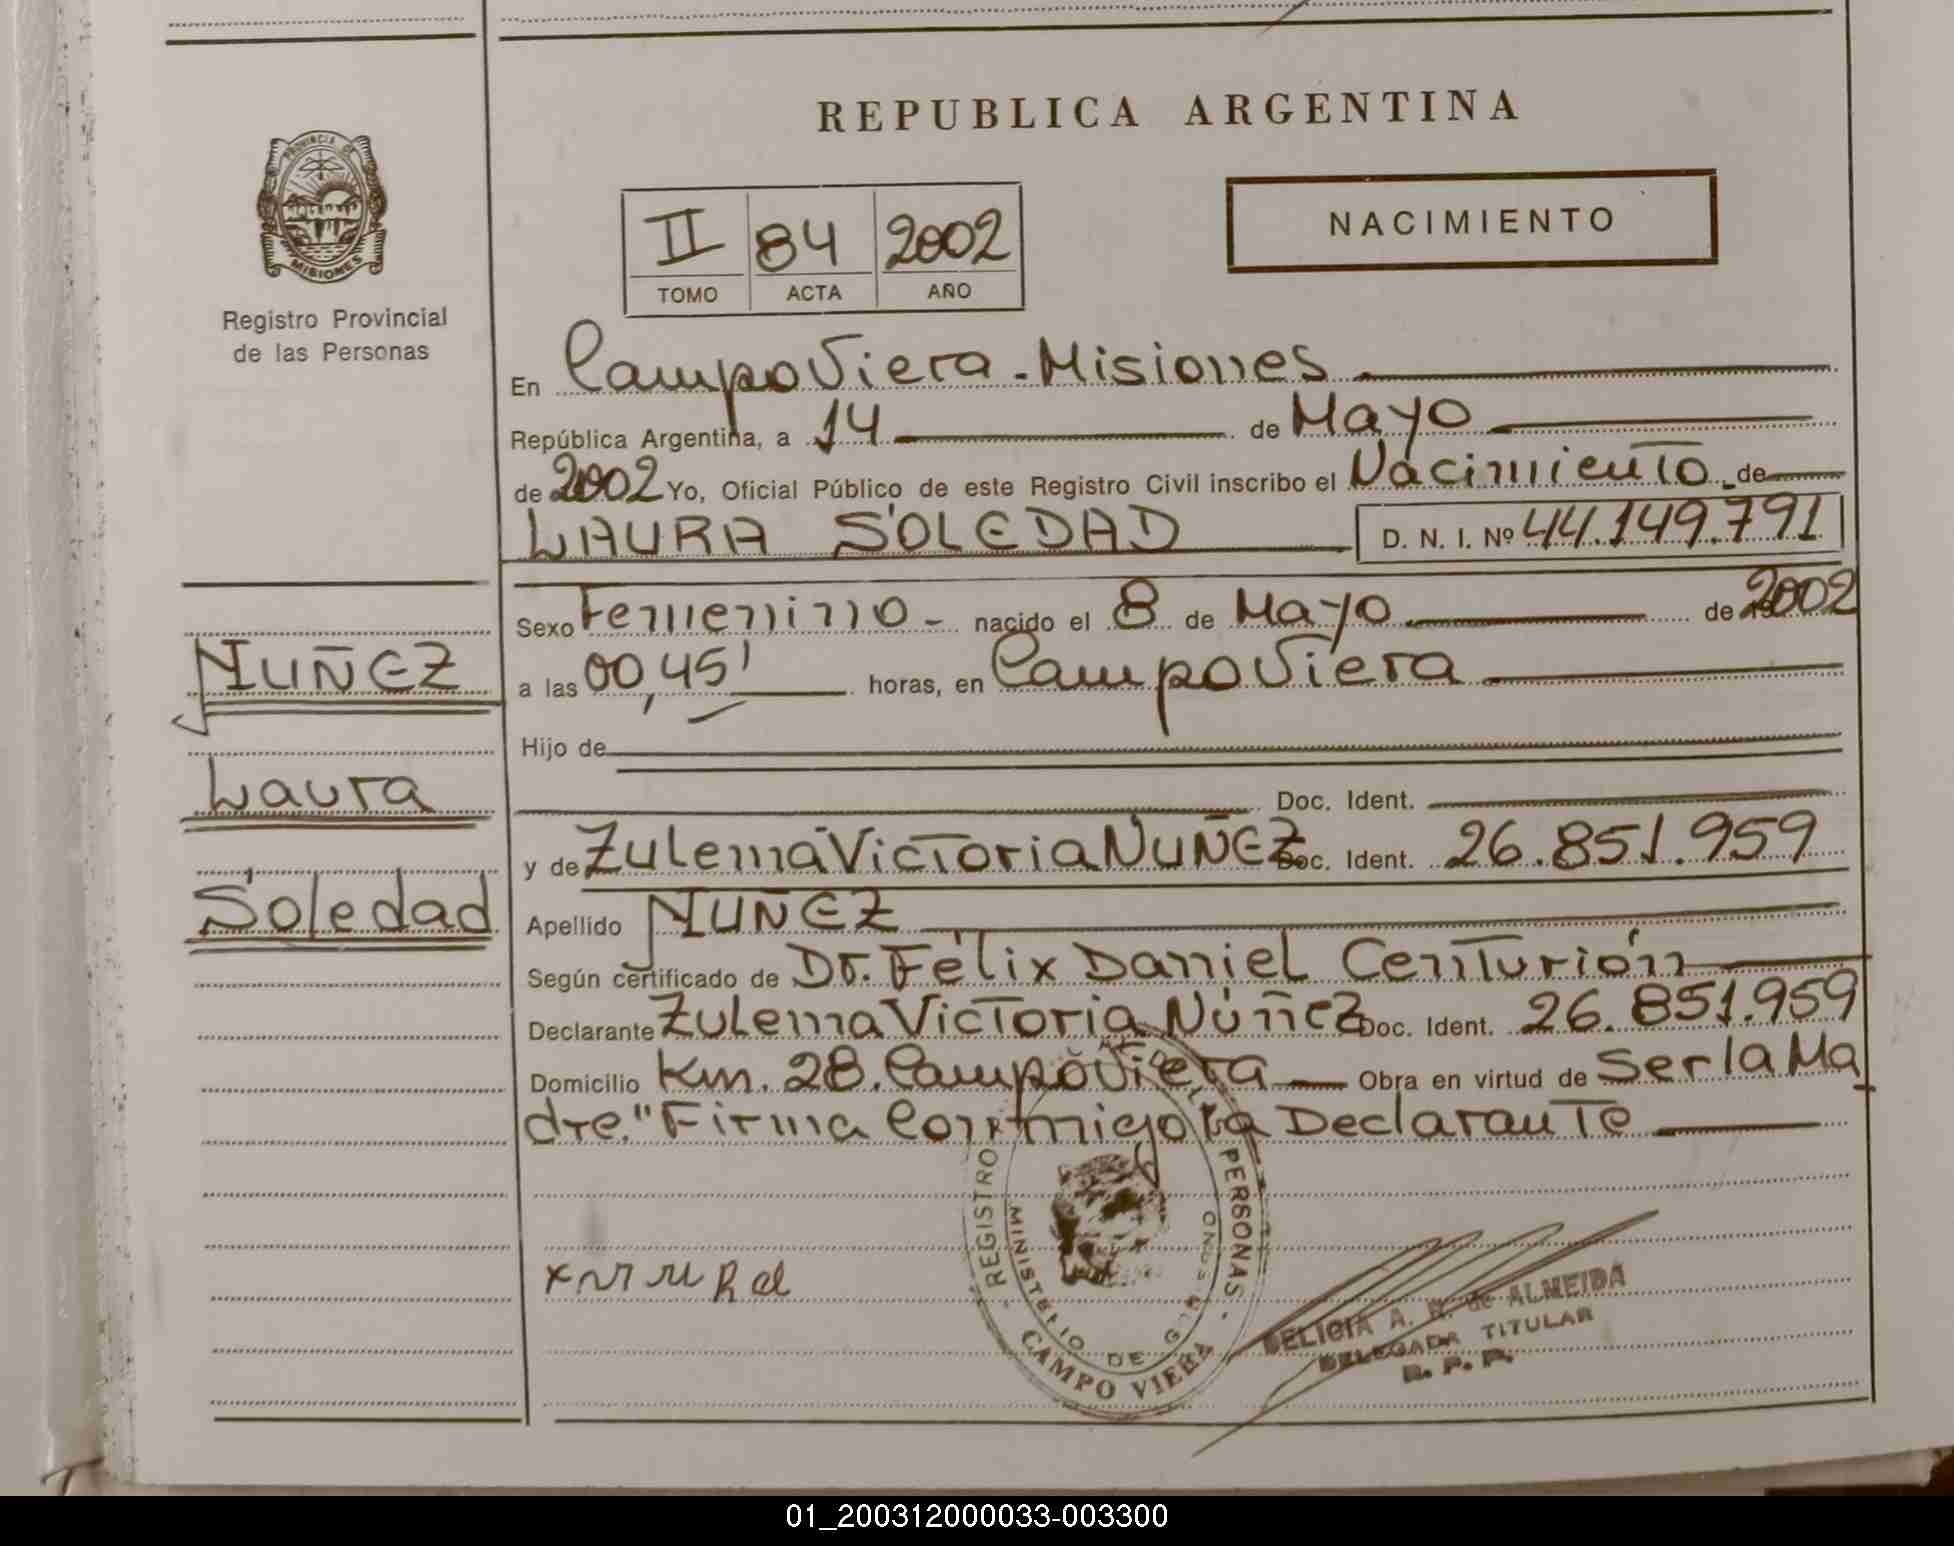 REPUBLICA ARGENTINA
PROVINCIA DE
MISIONES
Registro Provincial
de las Personas
II 84 2002
TOMO ACTA AÑO
NACIMIENTO
En Campo Viera - Misiones
República Argentina, a 14 de Mayo
de 2002 Yo, Oficial Público de este Registro Civil inscribo el Nacimiento de
LAURA SOLEDAD D. N. I. Nº 44.149.791
Sexo Femenino - nacido el 8 de Mayo de 2002
NUÑEZ
a las 00,45' horas, en Campo Viera
Hijo de
Laura
Doc. Ident.
y de Zulema Victoria NUÑEZ Doc. Ident. 26.851.959
Soledad
Apellido NUÑEZ
Según certificado de Dr. Félix Daniel Centurión
Declarante Zulema Victoria Núñez Doc. Ident. 26.851.959
Domicilio Km. 28. Campo Viera Obra en virtud de Ser la Ma
dre." Firma Conmigo la Declarante
REGISTRO PERSONAS
MINISTERIO DE
CAMPO VIERA
DELICIA A. de ALMEIDA
DELEGADA TITULAR
R. P. P.
01_200312000033-003300